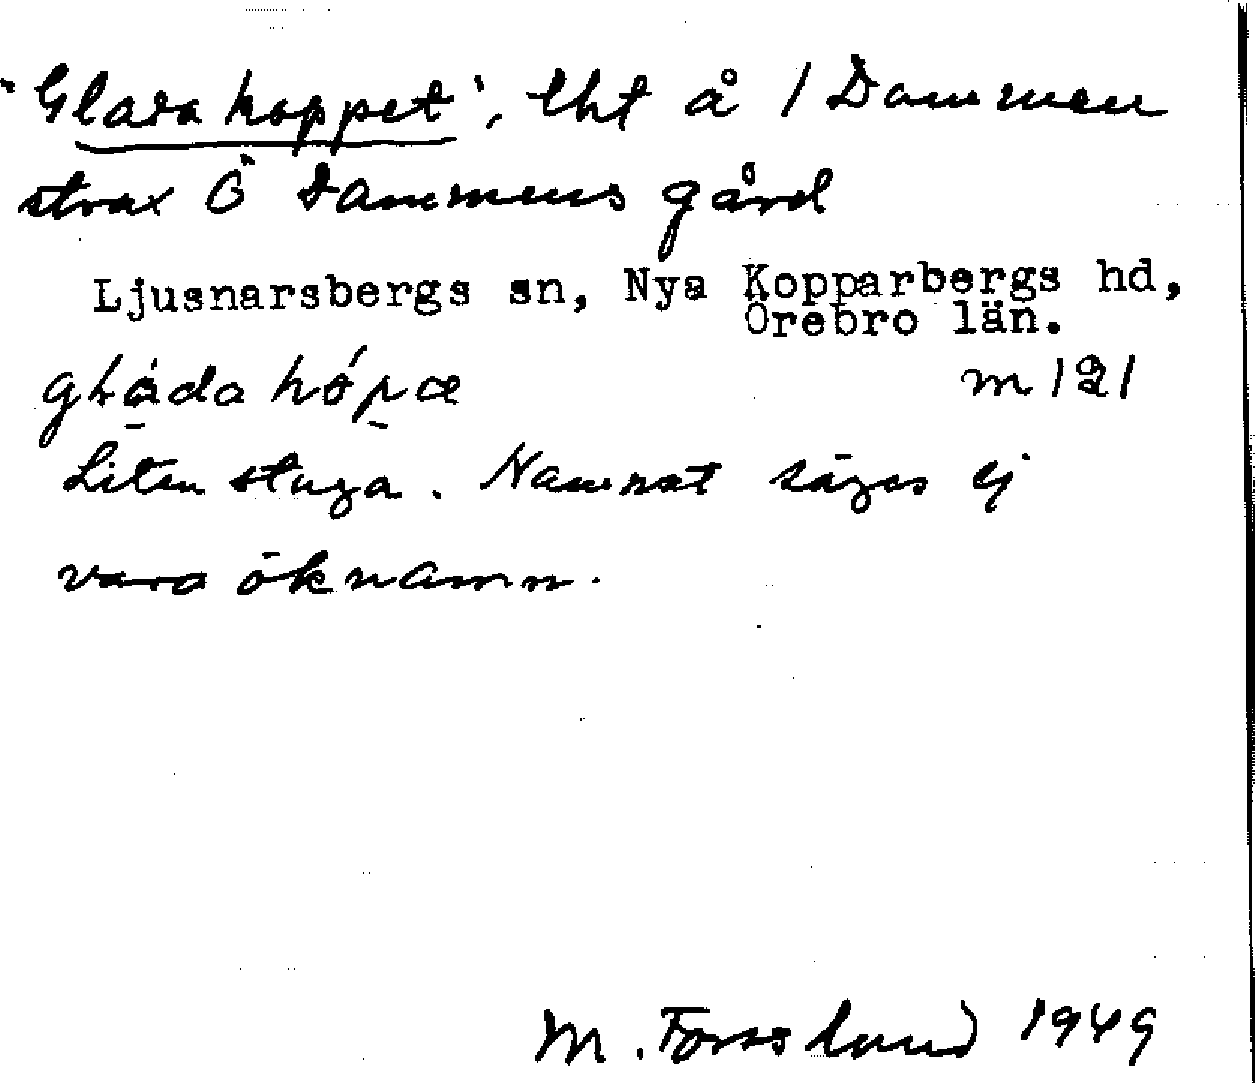 "Glada hoppet", lht å 1 Dammen
strax Ö Dammens gård
Ljusnarsbergs sn, Nya Kopparbergs hd,
Örebro län.
m 121
Liten stuga. Namnet säges ej
vara öknamn.
M. Forsslund 1949